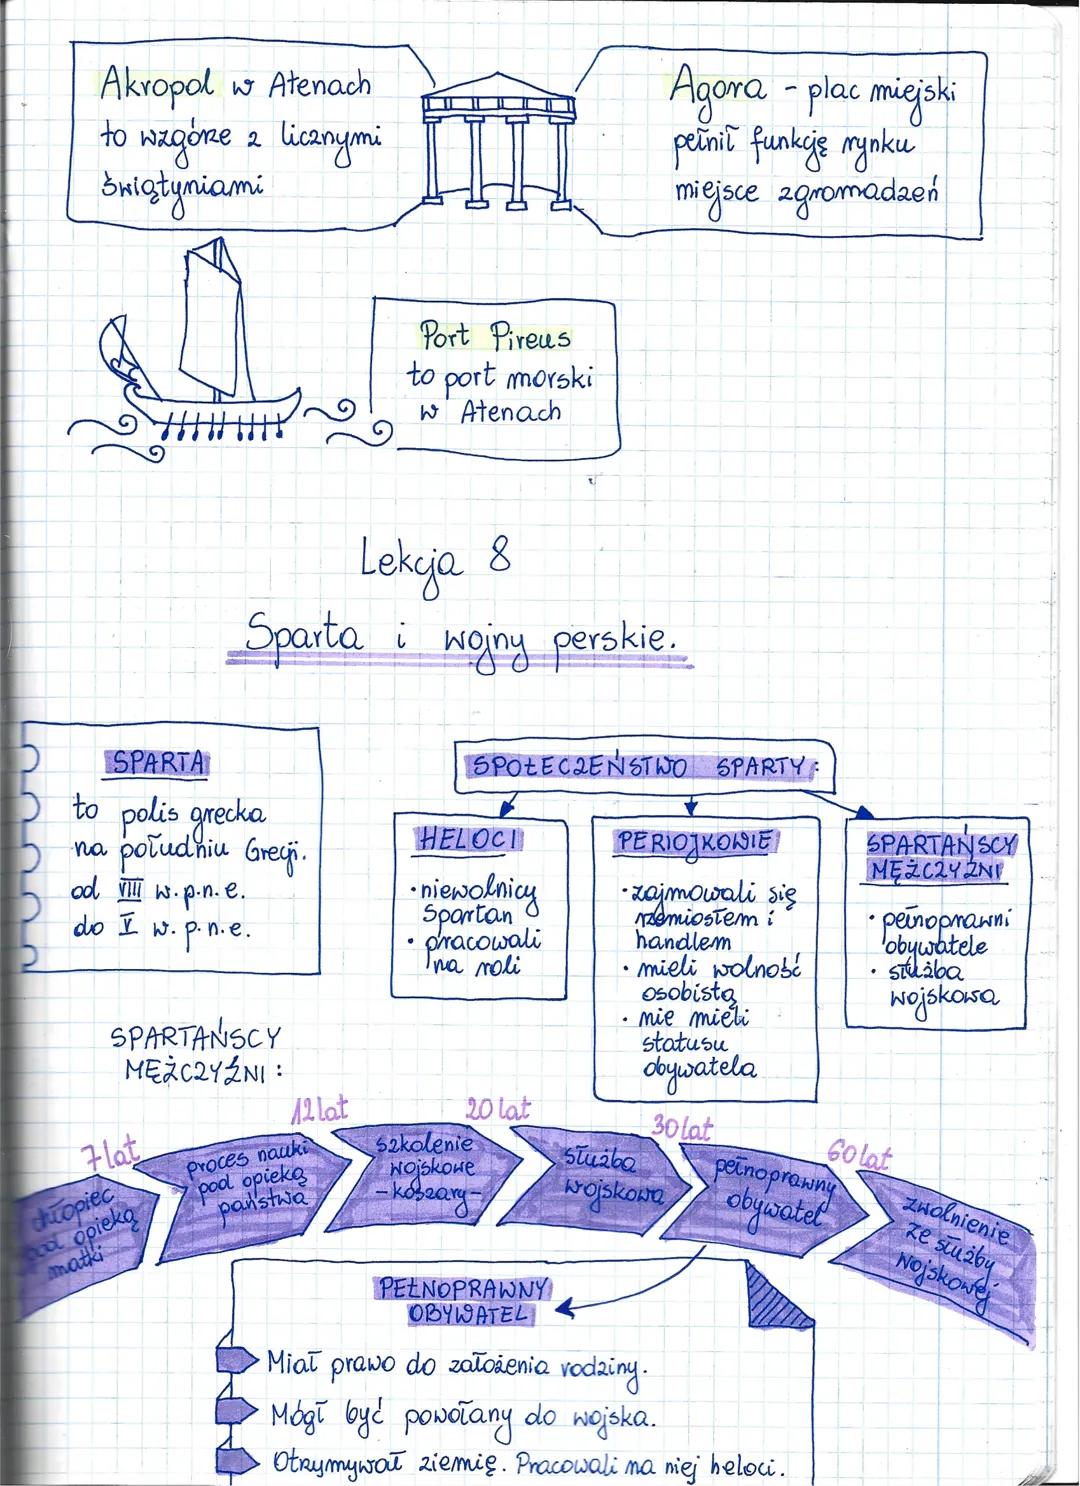 Akropol w Atenach
to wzgórze z licznymi
świątyniami
Agora - plac miejski
pełnił funkcję rynku
miejsce zgromadzeń
Port Pireus
to port morski
w Atenach
Lekcja 8
Sparta i wojny perskie.
SPARTA
to polis grecka
na południu Grecji.
od VIII w. p.n.e.
do V w. p.n.e.
SPOŁECZEŃSTWO SPARTY:
HELOCI
• niewolnicy
Spartan
• pracowali
na roli
PERIOJKOWIE
• zajmowali się
rzemiosłem i
handlem
• mieli wolność
osobistą
• nie mieli
statusu
obywatela
SPARTAŃSCY
MĘŻCZYŹNI
• pełnoprawni
obywatele
• służba
wojskowa
SPARTAŃSCY
MĘŻCZYŹNI:
7 lat
12 lat
20 lat
30 lat
60 lat
chłopiec
pod opieką
matki
proces nauki
pod opieką
państwa
szkolenie
wojskowe
- koszary -
służba
wojskowa
pełnoprawny
obywatel
zwolnienie
ze służby
wojskowej
PEŁNOPRAWNY
OBYWATEL
Miał prawo do założenia rodziny.
Mógł być powołany do wojska.
Otrzymywał ziemię. Pracowali na niej heloci.